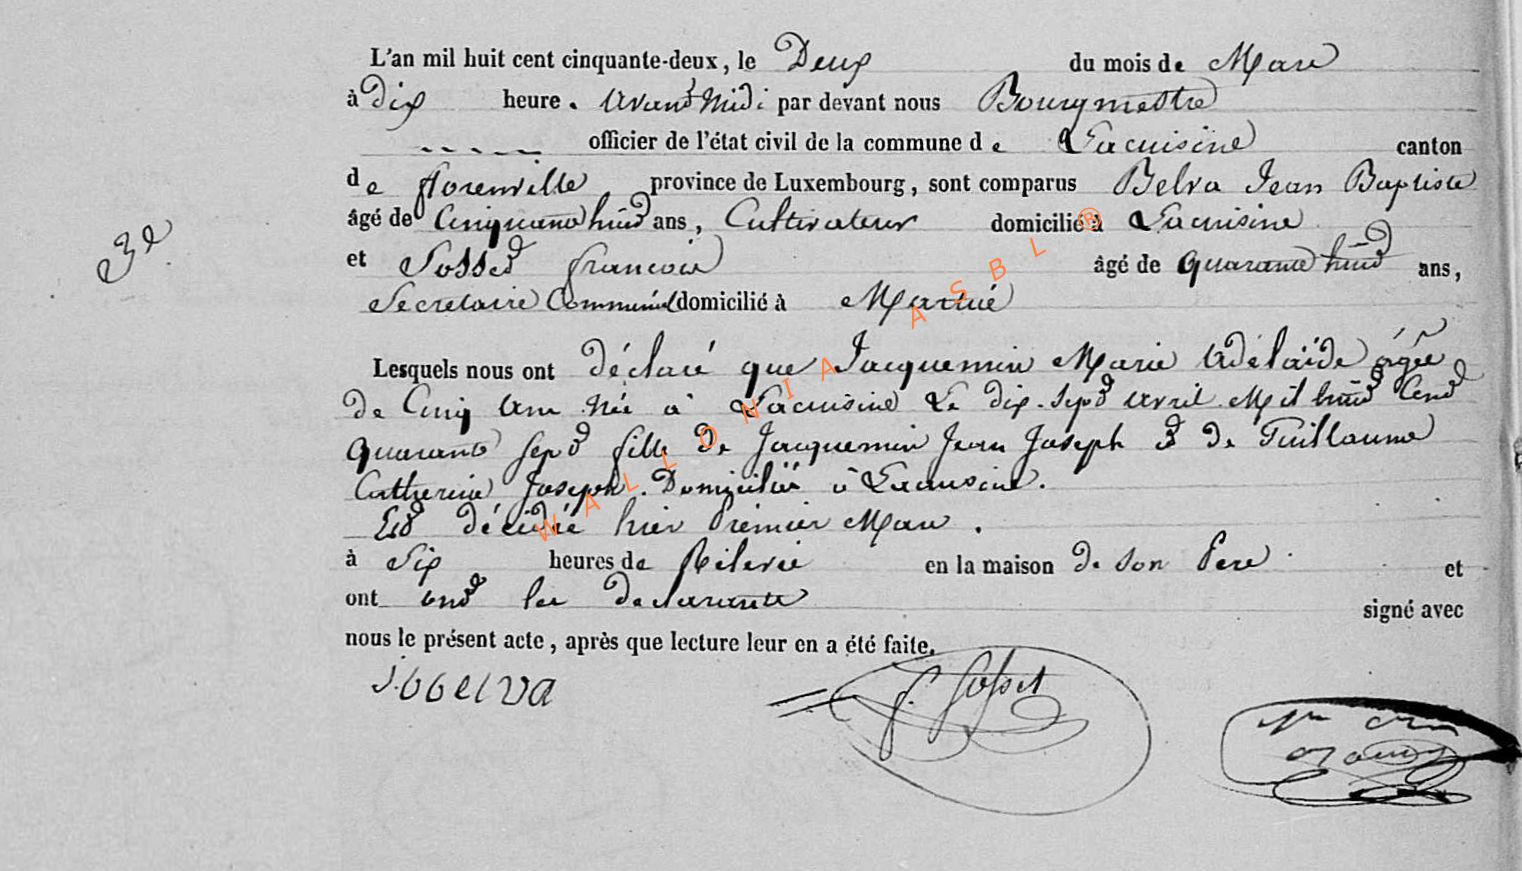 L'an mil huit cent cinquante-deux, le Deux du mois de Mars
à dix heures avant Midi par devant nous Bourgmestre
officier de l'état civil de la commune de Lacuisine canton
de florenville province de Luxembourg, sont comparus Belva Jean Baptiste
âgé de Cinquante huit ans, Cultivateur domicilié à Lacuisine
3e
et Gosset françois âgé de quarante huit ans,
Secretaire Communal domicilié à
Lesquels nous ont déclaré que Jacquemin Marie Adélaïde âgée
de Cinq ans Née à Lacuisine Le dix-sept avril Mil huit Cent
quarante sept fille de Jacquemin Jean Joseph et de Guillaume
Catherine Joseph Domiciliés à Lacuisine.
Est décédée hier Premier Mars.
à Six heures de Rélevée en la maison de son Pere et
ont les declarants signé avec
nous le présent acte, après que lecture leur en a été faite.
jbbelva f. Gosset
WALLONIA ASBL ®